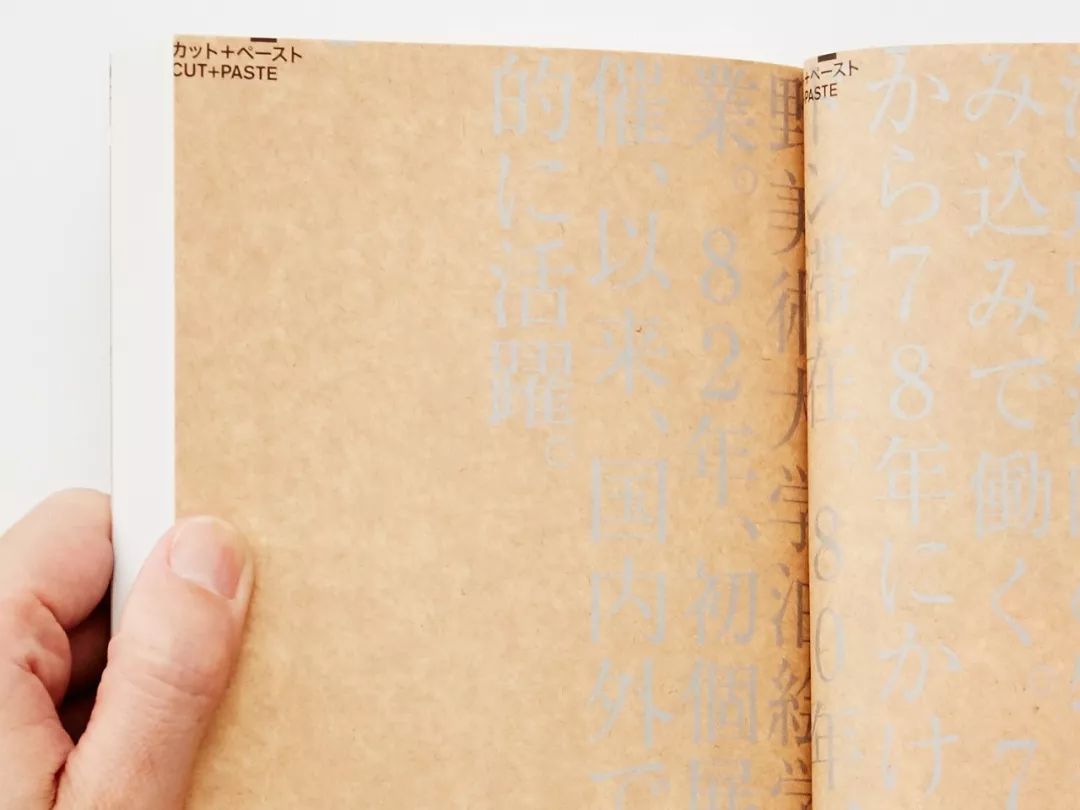 カット+ペースト
CUT+PASTE
+ペースト
PASTE
み込みで働く。7
から78年にかけ
ン滞在。80年
野美術大学油絵学
業。82年、初個展
催、以来、国内外で
的に活躍。